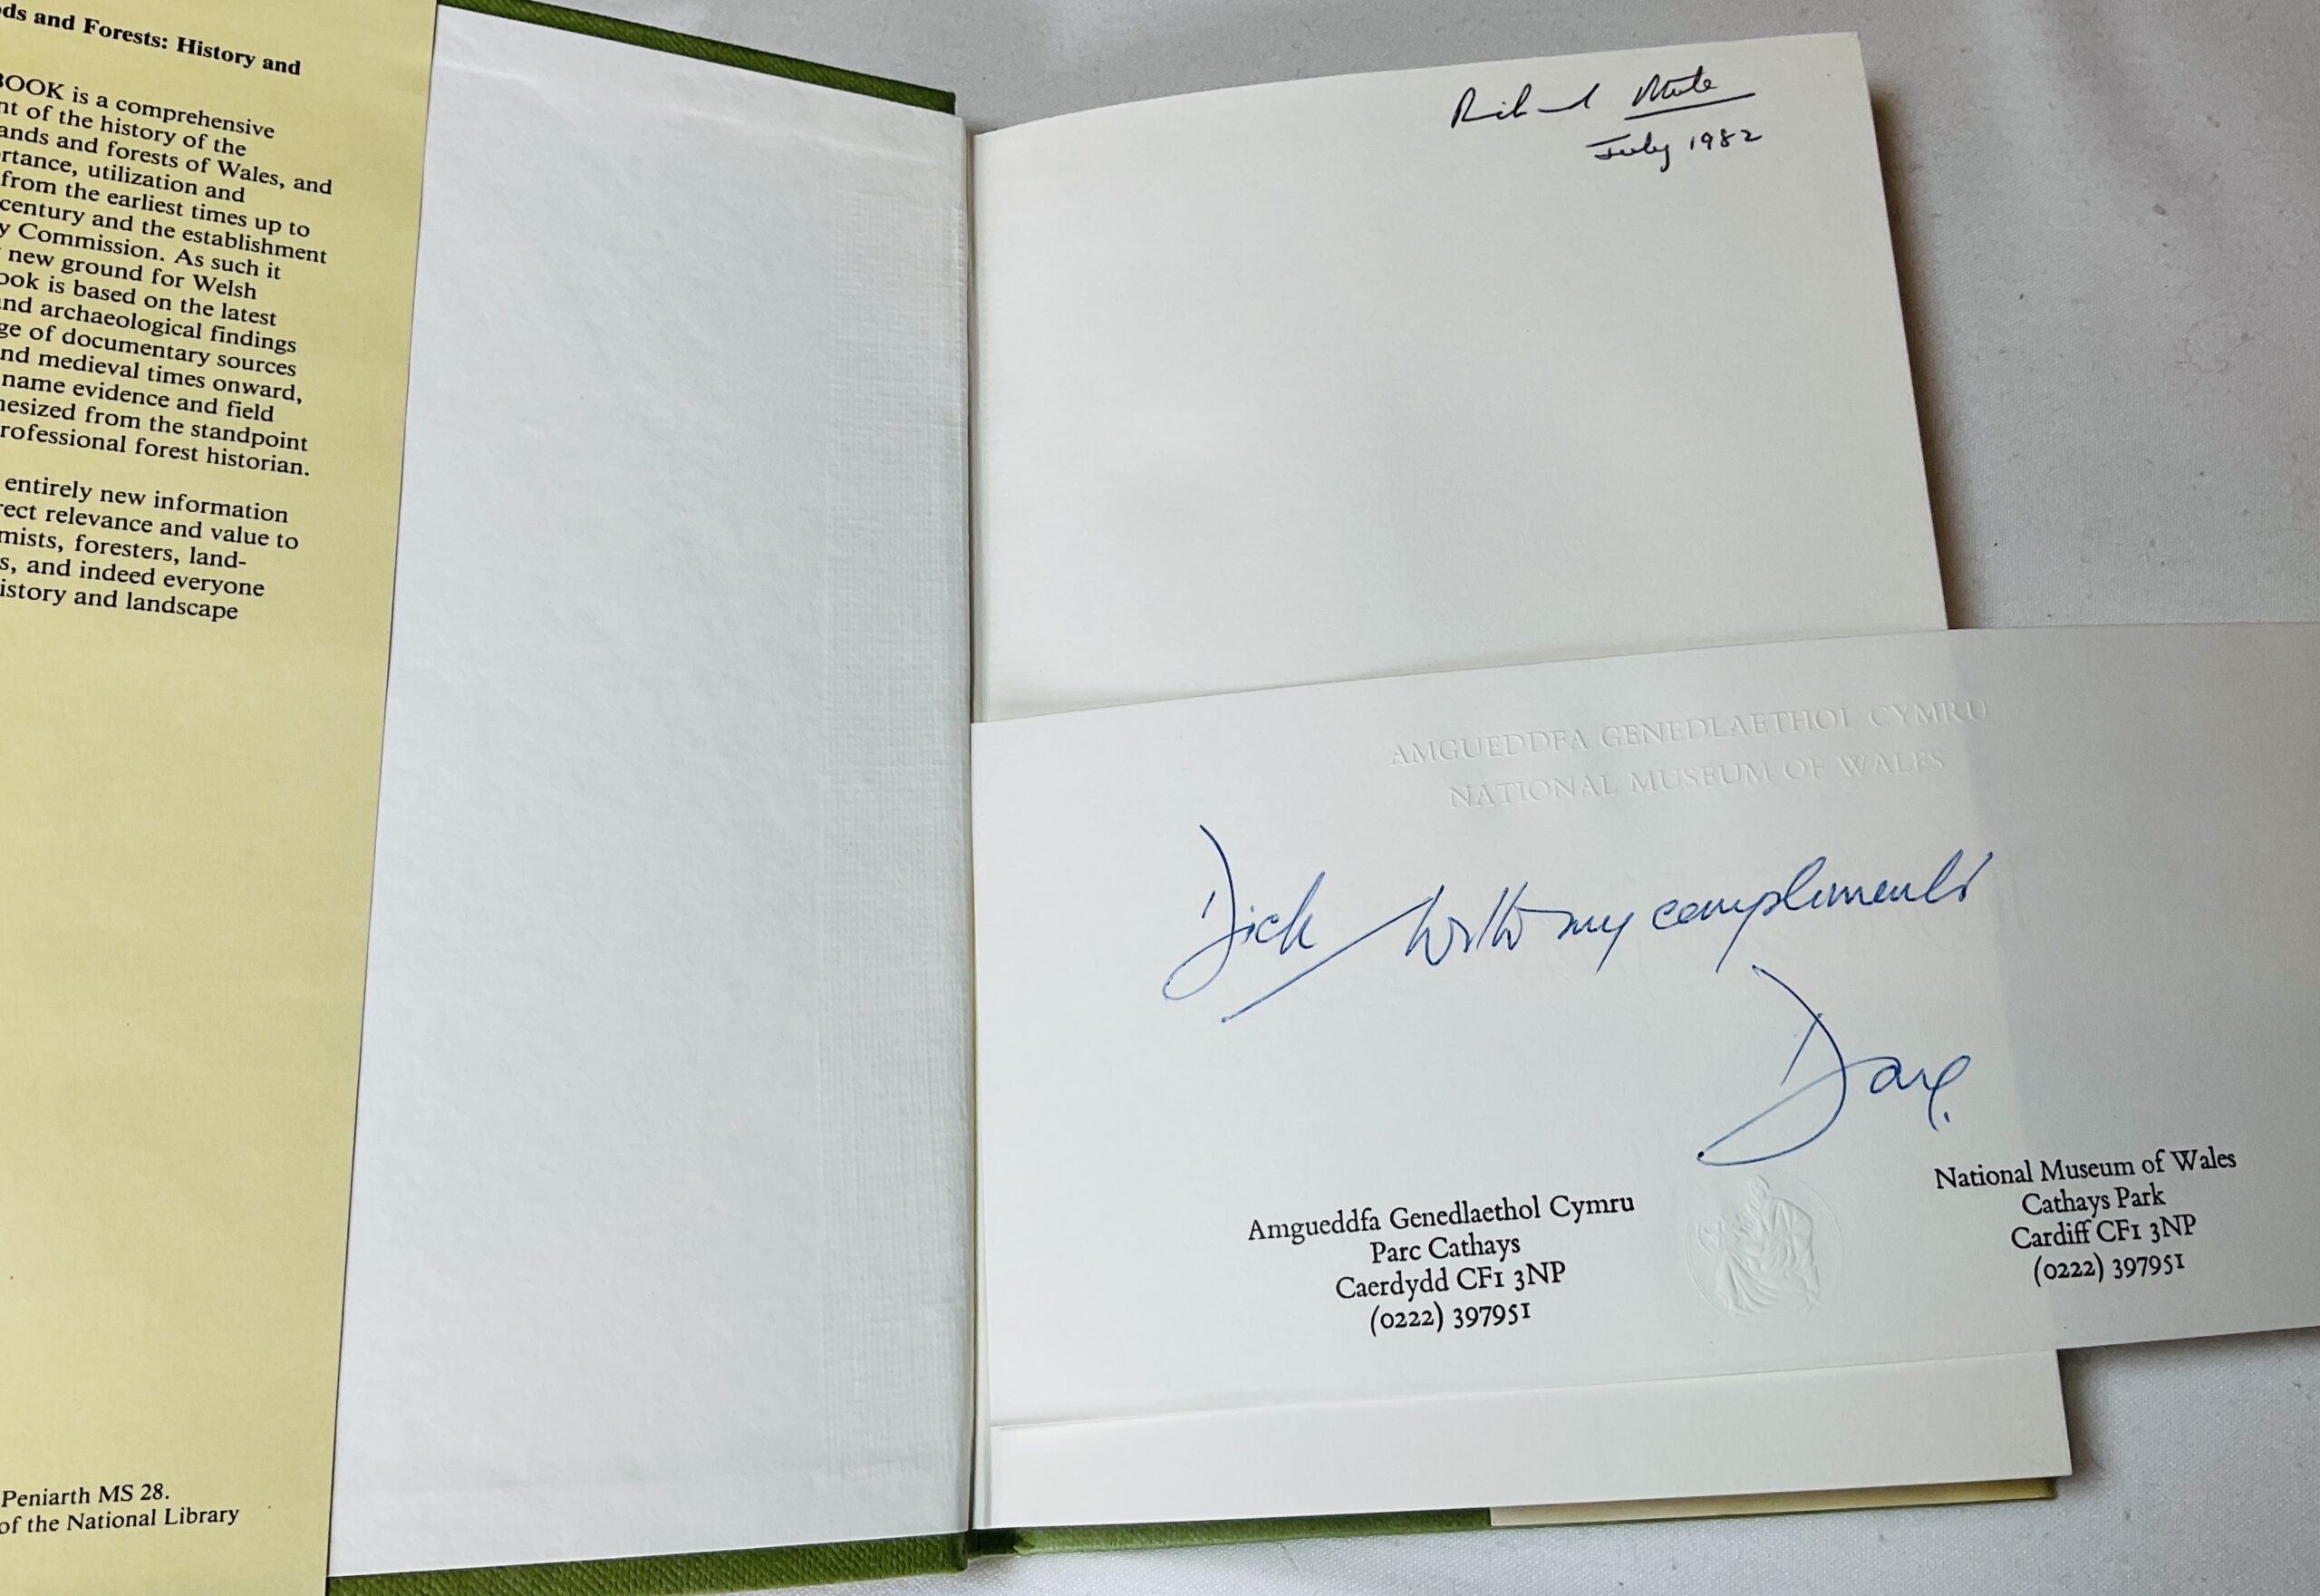 ds and Forests: History and
BOOK is a comprehensive
nt of the history of the
ands and forests of Wales, and
rtance, utilization and
from the earliest times up to
century and the establishment
y Commission. As such it
new ground for Welsh
ook is based on the latest
nd archaeological findings
ge of documentary sources
nd medieval times onward,
name evidence and field
hesized from the standpoint
rofessional forest historian.
entirely new information
rect relevance and value to
mists, foresters, land-
s, and indeed everyone
istory and landscape
Peniarth MS 28.
of the National Library
Richard
July 1982
AMGUEDDFA GENEDLAETHOL CYMRU
NATIONAL MUSEUM OF WALES
Dick with my compliments
Dave.
Amgueddfa Genedlaethol Cymru
Parc Cathays
Caerdydd CF1 3NP
(0222) 397951
National Museum of Wales
Cathays Park
Cardiff CF1 3NP
(0222) 397951